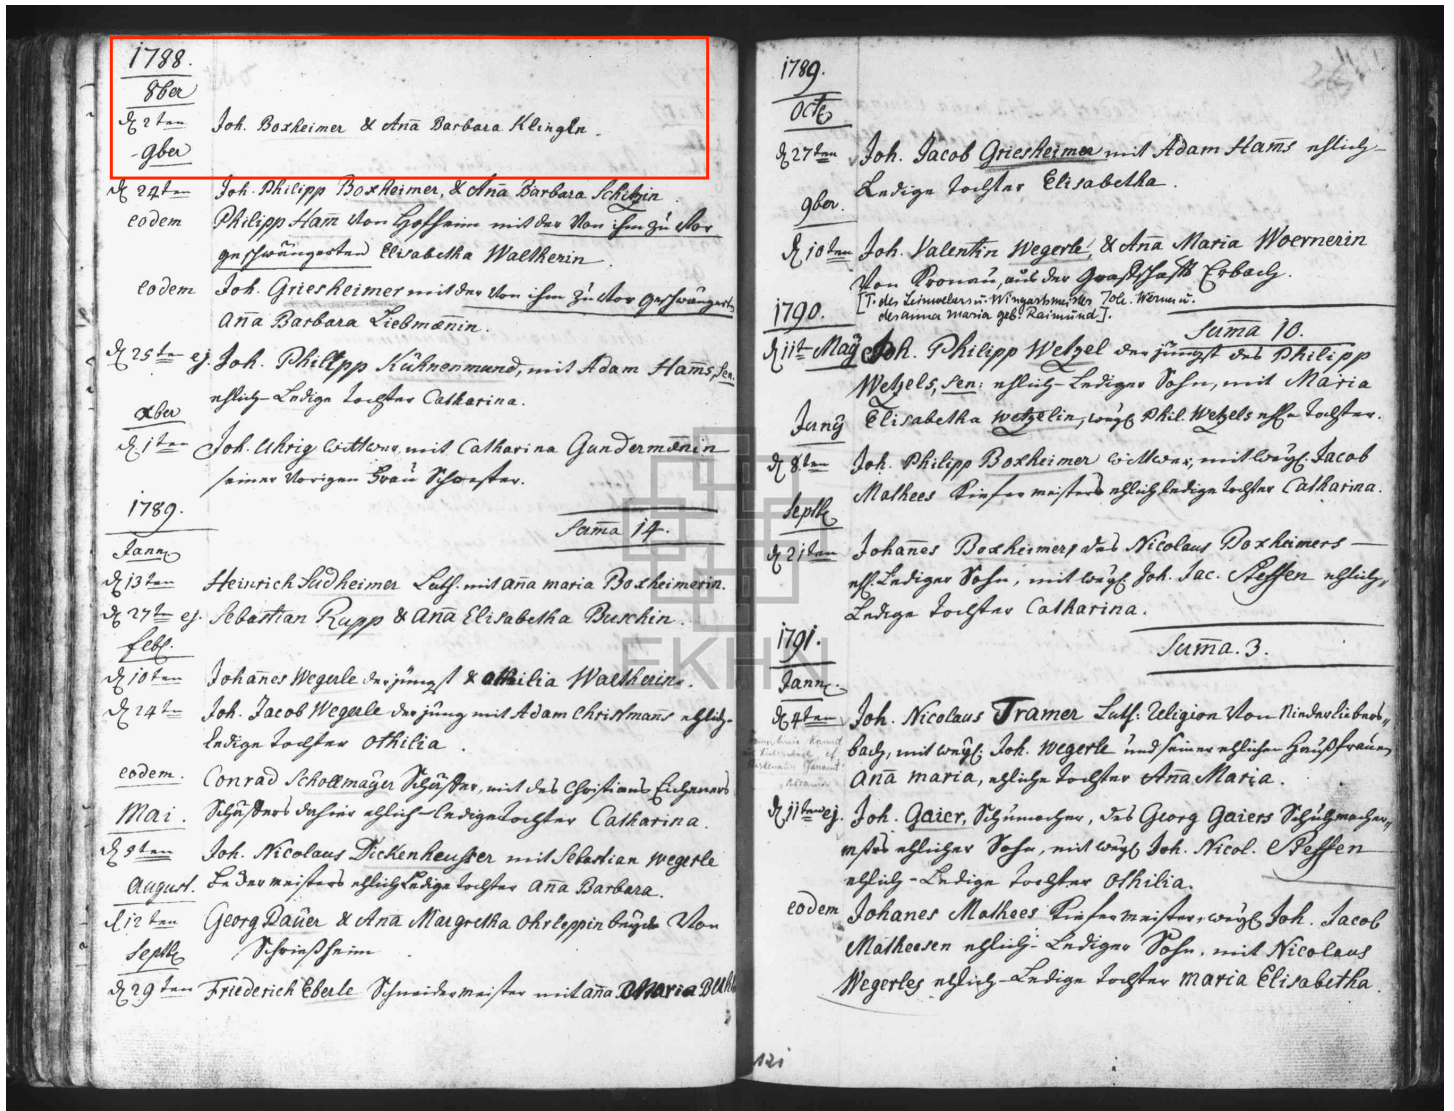 1788.
8ber
d 2ten Joh. Boxheimer & Aña Barbara Klingln.
9ber
d 24ten Joh. Philipp Boxheimer, & Aña Barbara Schitzin.
eodem Philipp Ham̄ von Hofheim mit der von ihm zu vor
geschwängerten Elisabetha Waltherin.
eodem Joh. Griesheimer mit der von ihm zu vor geschwängert
Aña Barbara Liebmæñin.
d 25ten ej. Joh. Philipp Kühnenmund, mit Adam Ham̄s, Sen.
ehlich-Ledige tochter Catharina.
xber
d 1ten Joh. Uhrig wittwer, mit Catharina Gundermænin
seiner vorigen Frau Schwester.
1789.
Sum̄a 14.
Jann
d 13ten Heinrich Sudheimer Luth. mit aña maria Boxheimerin.
d 27ten ej. Sebastian Rupp & Aña Elisabetha Buschin.
febr.
d 10ten Johañes Wegerle der jüngst & othilia Waltherin.
d 24ten Joh. Jacob Wegerle der jung mit Adam Christmañs ehlich-
ledige tochter othilia.
eodem. Conrad Schollmayer Schäffer, mit des Christians
Mai. Schäffers dahier ehlich-ledige tochter Catharina.
d 5ten Joh. Nicolaus Dickenheusser mit Sebastian wegerle
August. meisters ehlich Ledige tochter aña Barbara.
d 12ten Georg Dauer & Aña Margretha ohrleppin beyde von
Septb Schrießheim
d 29ten Friederich Eberle Schneidermeister mit aña Maria
1789.
Octb
d 27ten Joh. Jacob Griesheimer mit Adam Ham̄s ehlich-
Ledige tochter Elisabetha.
9ber.
d 10ten Joh. Valentin Wegerle, & Aña Maria Woernerin
von Kronau, aus der Grafschafft Erbach.
[T. des Leinwebers u. Wingartsmeister Joh. Werner u.
der anna maria geb. Raimund].
1790.
Sum̄a 10.
d 11ten May Joh. Philipp Wetzel der jüngst des Philipp
Wetzels, Sen: ehlich-Lediger Sohn, mit Maria
Juny Elisabetha Wetzelin, weyl Phil. Wetzels ehl tochter.
d 8ten Joh. Philipp Boxheimer wittwer, mit weyl. Jacob
Mathees Kiefermeisters ehlich ledige tochter Catharina.
Septb
d 21ten Johañes Boxheimer, des Nicolaus Boxheimers
ehl. Lediger Sohn, mit weyl. Joh. Jac. Steffen ehlich,
Ledige tochter Catharina.
Sum̄a. 3.
1791.
Jann.
d 4ten Joh. Nicolaus Tramer Luth: Religion von Niederliebers,,
bach, mit weyl. Joh. Wegerle und seiner ehlichen Haußfrauen
aña maria, ehliche tochter Aña Maria.
d 11ten ej. Joh. Gaier, Schumacher, des Georg Gaiers Schuhmacher,,
mstrs ehlicher Sohn, mit weyl Joh. Nicol. Steffen
ehlich-Ledige tochter othilia.
eodem Johanes Mathees Kiefermeister, weyl Joh. Jacob
Matheesen ehlich-Lediger Sohn, mit Nicolaus
Wegerles ehlich-Ledige tochter maria Elisabetha.
121
EKHN